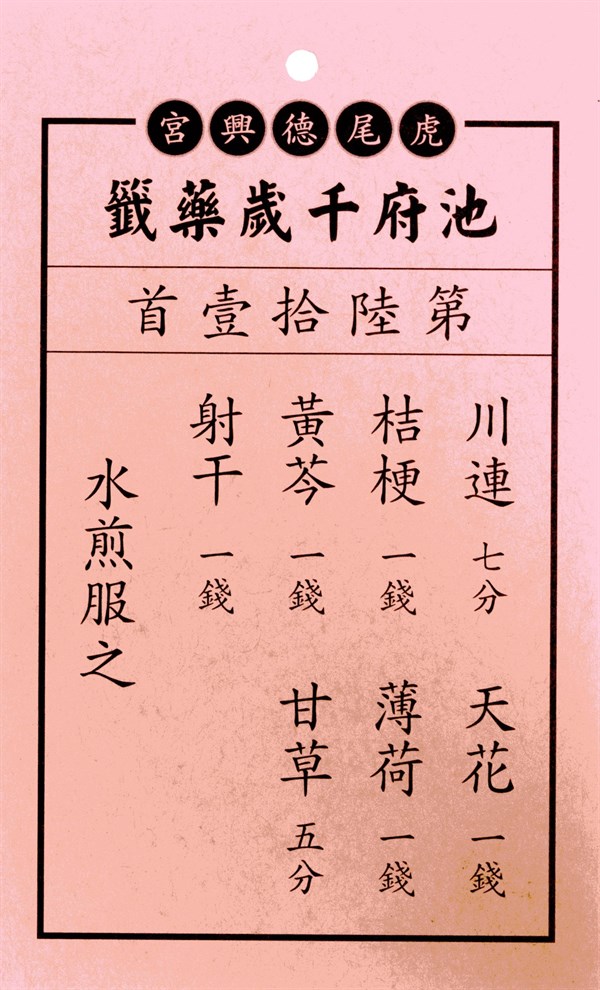 虎尾德興宮
池府千歲藥籤
第陸拾壹首
川連 七分 天花 一錢
桔梗 一錢 薄荷 一錢
黃芩 一錢 甘草 五分
射干 一錢
水煎服之